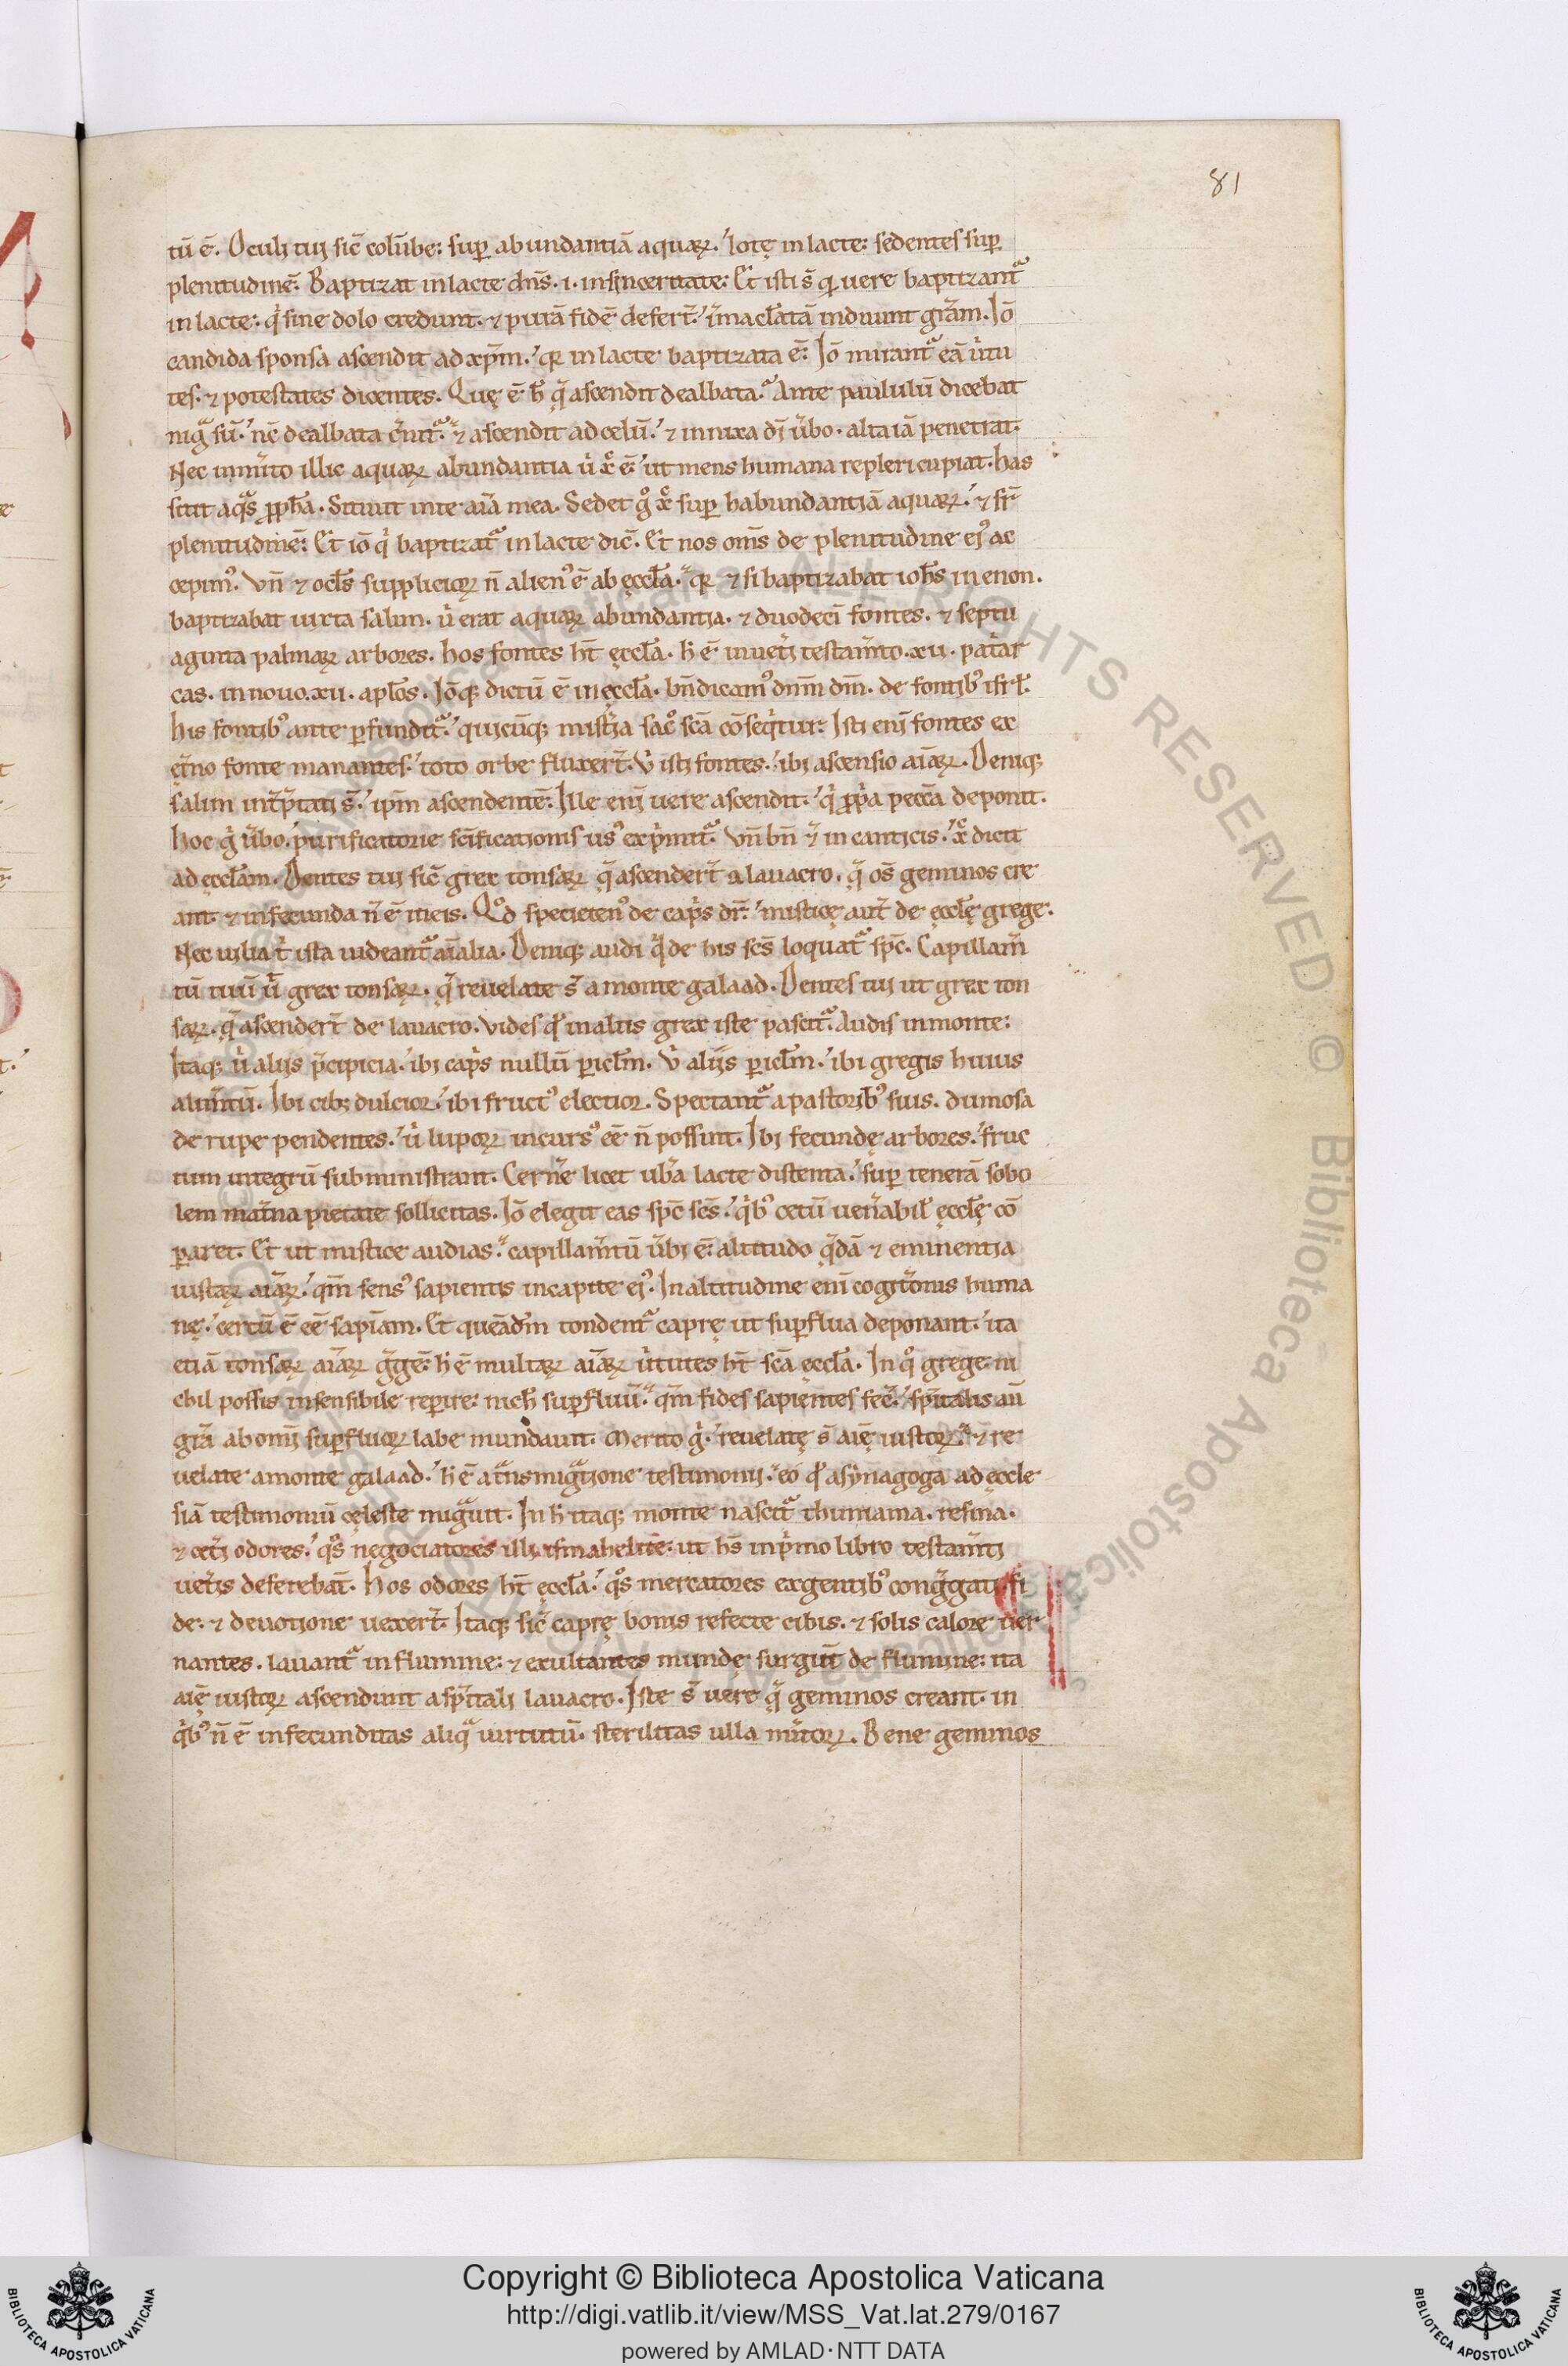 81
tū ē. Oculi tui sic̄ colūbe: sup abundantiā aquaꝝ. lotę in lacte: sedentes sup
plenitudinē. Baptizat in lacte dn̄s. i. in sinceritate: Et isti s̄ qui uere baptizant᷑
in lacte: qͥ sine dolo credunt. ⁊ purā fidē defert̄. īmacl̄atā induunt gr̄am. Iō
candida sponsa ascendit ad xp̄m. qr in lacte baptizata ē: Iō mirant᷑ eā uͥtu
tes. ⁊ potestates dicentes. Quę ē h̄ qͣ ascendit dealbata. Ante paululū dicebat
nigͣ sū. nc̄ dealbata c̄nit᷑. ⁊ ascendit ad celū. ⁊ innixa dī ūbo. alta iā penetrat.
Nec inm̄ito illic aquaꝝ abundantia uͥ xͨ ē: ut mens humana repleri cupiat. has
sitit aqͣs ꝓph̄a. Sitiuit in te aīa mea. Sedet gͦ xͨ sup habundantiā aquaꝝ. ⁊ sr̄
plenitudinē: Et iō qͥ baptizat᷑ in lacte dic̄. Et nos om̄s de plenitudine ei᷒ ac
cepim᷒. Vn̄ ⁊ ocl̄s supplicioꝝ n̄ alien᷒ ē ab ęccl̄a. qr ⁊ si baptizabat ioh̄s in enon.
baptizabat iuxta salim. uͥ erat aquaꝝ abundantia. ⁊ duodecī fontes. ⁊ septu
aginta palmaꝝ arbores. hos fontes ht̄ ęccl̄a. h̄ ē in uet̄i testam̄to .xii. pat̄ar
cas. in nouo .xii. apl̄os. Iō⁊q; dictū ē in ęccl̄a. bn̄dicam᷒ dn̄m dm̄. de fontib᷒ isrl̄.
his fontib᷒ ante ꝑfundit᷑. quicūq; mist̄ia sac̊ sc̄a cōseqͥtur: Isti enī fontes ex
et̄no fonte manantes. toto orbe fluxert̄. Vͥ isti fontes. ibi ascensio aīaꝝ. Deniq;
salim int̄p̄tati s̄. ip̄m ascendentē: Ille enī uere ascendit. qͥ ꝓp̄a pecc̄a deponit.
hoc gͥ ūbo. purificatorie sc̄ificationis us᷒ expͥmit᷑. Vn̄ bn̄ ⁊ in canticis. xͨ dicit
ad ęccl̄am. Dentes tui sic̄ grex tonsaꝝ qͣ ascendert̄ a lauacro. qͣ os̄ geminos cre
ant. ⁊ infecunda n̄ ē in eis. Qͦd specieten᷒ de capͥs dr̄. misticę aut̄ de ęccl̄ę grege.
Nec uilia t̄ ista uideant᷑ aīalia. Deniq; audi qͥd de his sc̄s loquat᷑ sp̄c. Capillam̄
tū tuū ut̄ grex tonsaꝝ. qͣ reuelate s̄ a monte galaad. Dentes tui ut grex ton
saꝝ. qͣ ascendert̄ de lauacro. Vides qͦd in altis grex iste pascit᷑. Audis in monte:
Itaq; uͥ aliis p̄cipicia. ibi capͥs nullū ꝑicl̄m. Vͥ aliis ꝑicl̄m. ibi gregis huius
alim̄tū. Ibi cib; dulcior. ibi fruct᷒ electior. Spectant᷑ a pastorib᷒ suis. dumosa
de rupe pendentes. uͥ lupoꝝ incurs᷒ eē n̄ possint. Ibi fecundę arbores. fruc
tum integrū subministrant. Cern̄e licet ub̄a lacte distenta. sup tenerā sobo
lem mat̄na pietate sollicitas. Iō elegit eas sp̄c sc̄s. qͥb᷒ cetū uen̄abil̄ ęccl̄ę cō
ꝑaret. Et ut mistice audias. capillam̄tū ūbi ē: altitudo qͣdā ⁊ eminentia
iustaꝝ aīaꝝ. qm̄ sens᷒ sapientis in capite ei᷒. In altitudine enī cogit̄onis huma
nę. certū ē eē sapīam. Et queādm̄ tondent᷑ caprę ut suꝑflua deponant. ita
etiā tonsaꝝ aīaꝝ gͣgē: h̄ ē multaꝝ aīaꝝ uͥtutes ht̄ sc̄a ęccl̄a. In qͦ grege ni
chil possis insensibile reꝑire: nich̄ suꝑfluū. qm̄ fides sapientes fec̄. sp̄italis aū
gr̄a ab omī suꝑfluoꝝ labe mundauit. Merito gͥ. reuelatę s̄ aīę iustoꝝ. ⁊ re
uelate a monte galaad. h̄ ē a tͣnsmigͣtione testimonii. eo qͦd a synagoga ad ęccle
siā testimoniū cęleste migͣuit. In h̄ itaq; monte nascit᷑ thimiama. resina.
⁊ cet̄i odores. qͦs negociatores illi ismahelitē: ut hs̄ in pͥmo libro testam̄ti
uet̄is deferebāt. Hos odores ht̄ ęccl̄a. qͦs mercatores ex gentib᷒ congͣgati fi
de. ⁊ deuotione uexert̄. Itaq; sic̄ caprę bonis refecte cibis. ⁊ solis calore uer
nantes. lauant᷑ in flumine: ⁊ exultantes mundę surgūt de flumine: ita
aīę iustoꝝ ascendunt a sp̄itali lauacro. Iste s̄ uere qͣ geminos creant. in
qͥb᷒ n̄ ē infecunditas aliqͣ uirtutū. sterilitas ulla mͥtoꝝ. Bene geminos
Copyright © Biblioteca Apostolica Vaticana
http://digi.vatlib.it/view/MSS_Vat.lat.279/0167
powered by AMLAD·NTT DATA